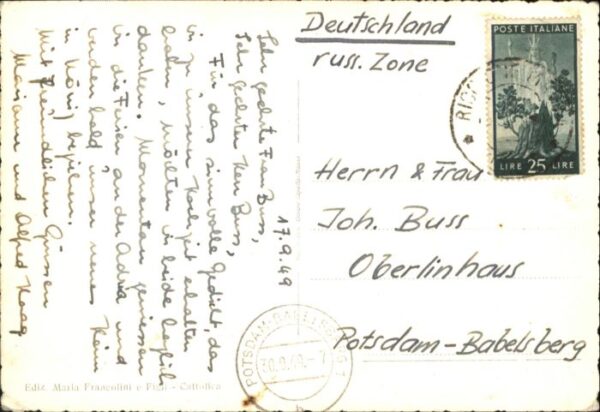 Deutschland
russ. Zone
POSTE ITALIANE
LIRE 25 LIRE
RICC
Herrn & Frau
Joh. Buss
Oberlinhaus
Potsdam-Babelsberg
POTSDAM-BABELSBERG 1
17.9.49
Sehr geehrte Frau Buss,
Sehr geehrter Herr Buss,
Für das sinnvolle Gedicht, das
wir zu unserer Hochzeit erhalten
haben, möchten wir beide herzlich
danken. Momentan geniessen
wir die Ferien an der Adria und
werden bald unser neues Heim
in beziehen.
Mit freundlichen Grüssen
Mariann und Alfred Haag
Ediz. Maria Francolini e Figli - Cattolica